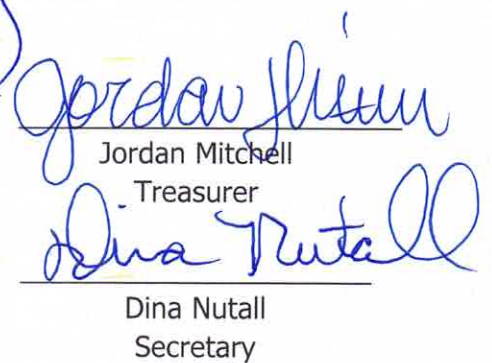 Jordan
Jordan Mitchell
Treasurer
Dina Nutall
Dina Nutall
Secretary